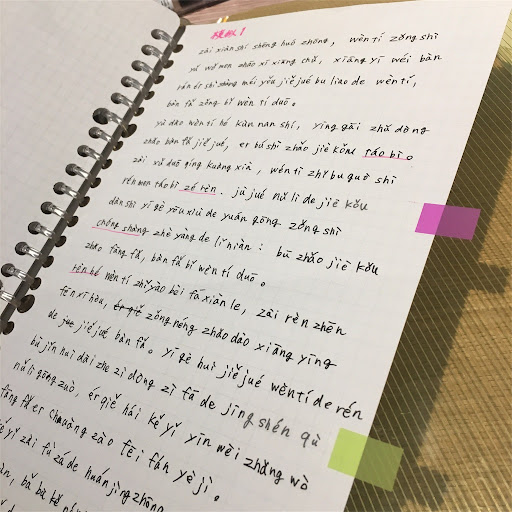 zài xiàn shí shēng huó zhōng, wèn tí zǒng shì
yǔ wǒ men zhāo xī xiāng chǔ, xiǎng yī wéi bàn
rán ér shì shàng méi yǒu jiě jué bu liǎo de wèn tí,
bàn fǎ zǒng bǐ wèn tí duō。
yù dào wèn tí hé kùn nan shí, yīng gāi zhǔ dòng
zhǎo bàn fǎ jiě jué, er bú shì zhǎo jiè kǒu táo bì。
zài xǔ duō qíng kuàng xià, wèn tí zhǐ bu guò shì
rén men táo bì zé rèn. jù jué nǔ lì de jiè kǒu
dàn shì yī gè yōu xiù de yuán gōng zǒng shì
chóng shàng zhè yàng de lǐ niàn: bū zhǎo jiè kǒu
zhǎo fāng fǎ, bàn fǎ bǐ wèn tí duō。
rèn hé wèn tí zhǐ yào bèi fā xiàn le, zài rèn zhēn
fēn xī hòu, zǒng néng zhǎo dào xiāng yīng
de jiě jué bàn fǎ。 yī gè huì jiě jué wèn tí de rén
bù jǐn huì dài zhe zì dòng zì fā de jīng shén qù
nǔ lì gōng zuò, ér qiě hái kě yǐ yīn wèi zhǎng wò
fāng fǎ er chuàng zào fēi fán yè jì。
yǐ zài fù zá de huán jìng zhōng
bǎ bù kě